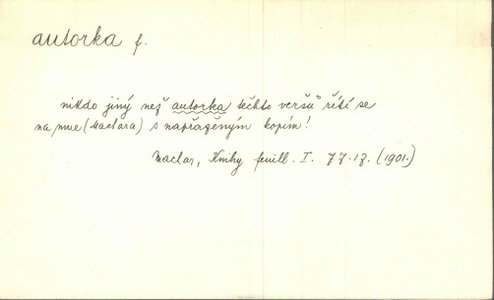 autorka f.
nikdo jiný než autorka těchto veršů řítí se
na mne (Macharа) s napřaženým kopím!
Machar, Knihy feuill. I. 77.17. (1901.)